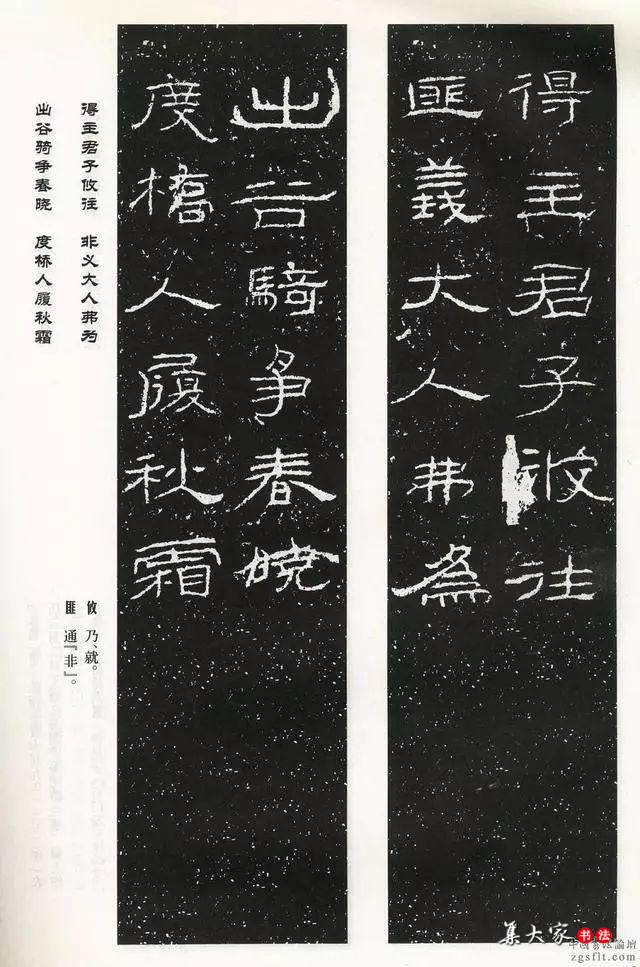 得主君子攸往
匪義大人弗為
出谷騎爭春曉
度橋人履秋霜
得主君子攸往　非义大人弗为
出谷骑争春晓　度桥人履秋霜
攸　乃、就。
匪　通『非』。
集大家书法
中國書法論壇
zgsflt.com